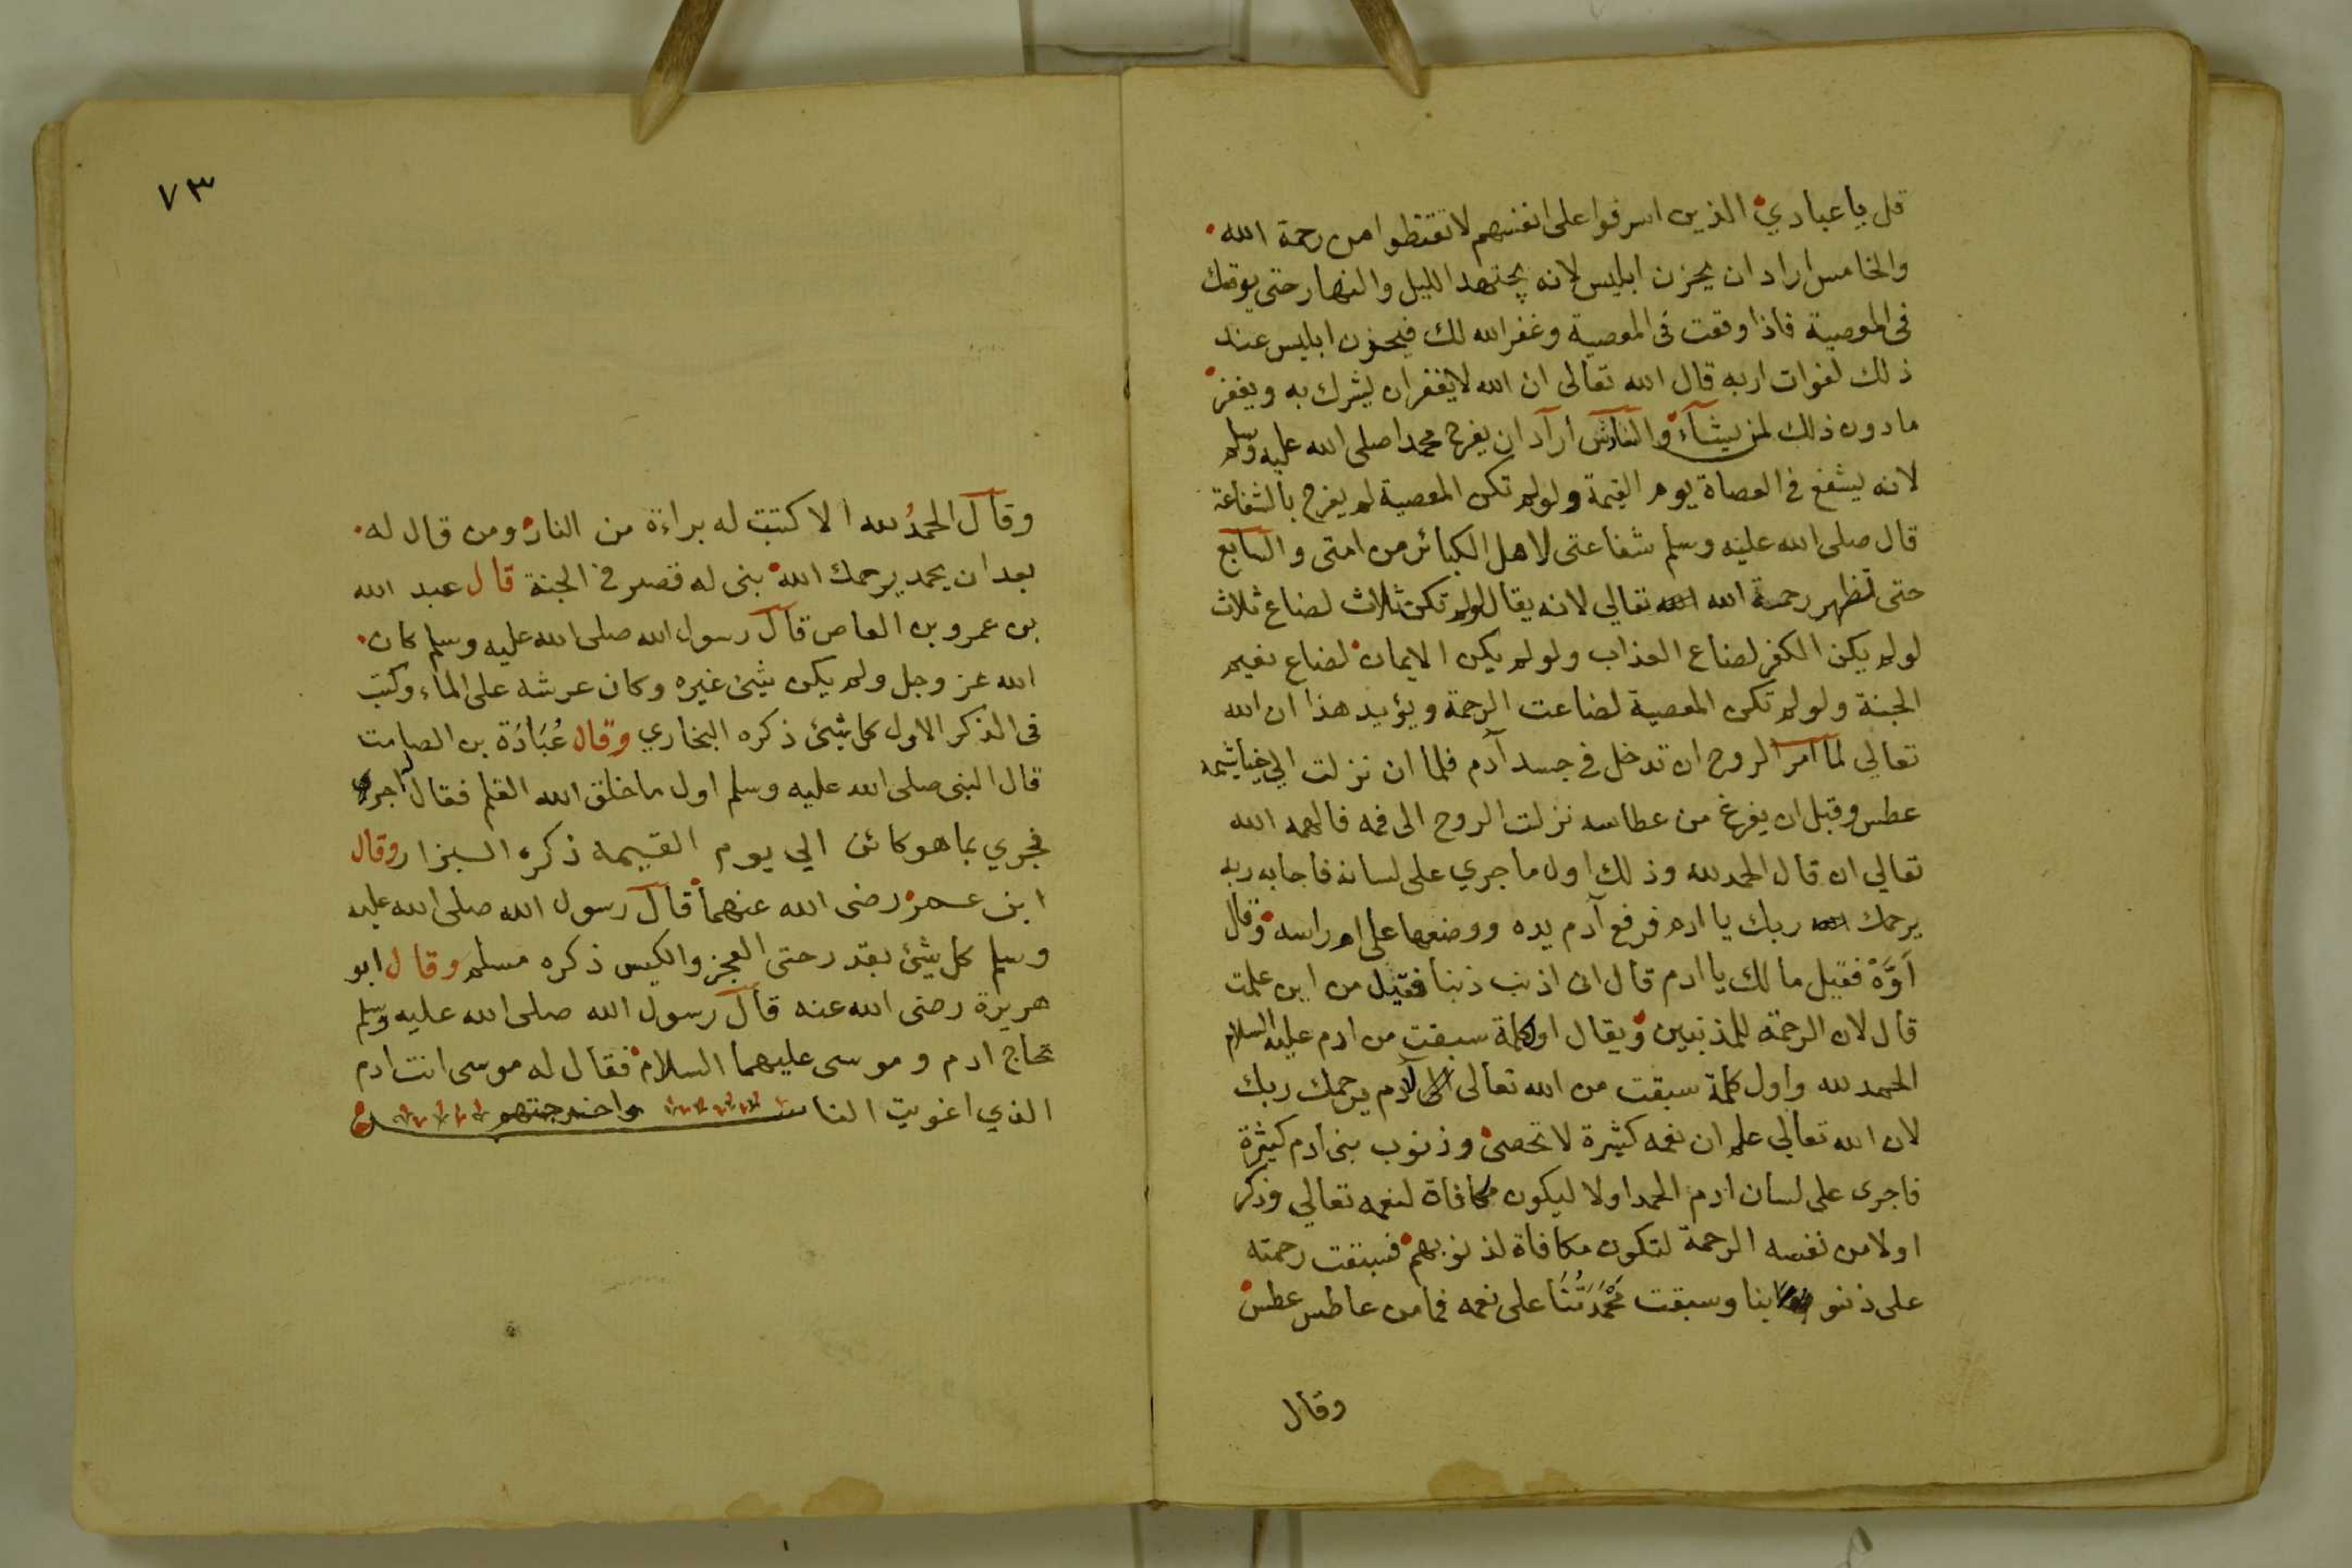 قل يا عبادي الذين اسرفوا على انفسهم لا تقنطوا من رحمة الله
والخامس اراد ان يحزن ابليس لانه يجتهد الليل والنهار حتى يوقعك
فى المعصية فاذا وقعت فى المعصية وغفر الله لك فيحزن ابليس عند
ذلك لفوات اربه قال الله تعالى ان الله لا يغفر ان يشرك به ويغفر
ما دون ذلك لمن يشآء والسادس اراد ان يفرح محمدا صلى الله عليه وسلم
لانه يشفع فى العصاة يوم القيمة ولو لم تكن المعصية لم يفرح بالشفاعة
قال صلى الله عليه وسلم شفاعتى لاهل الكبائر من امتى والسابع
حتى تظهر رحمة الله تعالي لانه يقال لو لم تكن ثلاث لضاع ثلاث
لو لم يكن الكفر لضاع العذاب ولو لم يكن الايمان لضاع نعيم
الجنة ولو لم تكن المعصية لضاعت الرحمة ويؤيد هذا ان الله
تعالي لما امر الروح ان تدخل فى جسد آدم فلما ان نزلت الي خياشيمه
عطس وقبل ان يفرغ من عطاسه نزلت الروح الى فمه فالهمه الله
تعالي ان قال الحمد لله وذلك اول ما جري على لسانه فاجابه ربه
يرحمك ربك يا ادم فرفع آدم يده ووضعها على ام راسه وقال
اَوَّهْ فقيل ما لك يا ادم قال انى اذنبت ذنبا فقيل من اين علمت
قال لان الرحمة للمذنبين ويقال اول كلمة سبقت من ادم عليه السلام
الحمد لله واول كلمة سبقت من الله تعالى لآدم يرحمك ربك
لان الله تعالي علم ان نعمه كثيرة لا تحصى وذنوب بنى ادم كثيرة
فاجرى على لسان ادم الحمد اولا ليكون مكافاة لنعمه تعالي وذكر
اولا من نفسه الرحمة لتكون مكافاة لذنوبهم فسبقت رحمته
على ذنوبنا وسبقت مَحْمَدَتُنَا على نعمه فما من عاطس عطس
وقال
٧٣
وقال الحمدُ لله الا كتبت له براءة من النار ومن قال له
بعد ان يحمد يرحمك الله بنى له قصر فى الجنة قال عبد الله
بن عمرو بن العاص قال رسول الله صلى الله عليه وسلم كان
الله عز وجل ولم يكن شيئ غيره وكان عرشه على الماء وكتب
فى الذكر الاول كل شيئ ذكره البخاري وقال عُبَادَة بن الصامت
قال النبى صلى الله عليه وسلم اول ما خلق الله القلم فقال له اجر
فجري بما هو كائن الي يوم القيمة ذكره البزار وقال
ابن عمر رضى الله عنهما قال رسول الله صلى الله عليه
وسلم كل شيئ بقدر حتى العجز والكيس ذكره مسلم وقال ابو
هريرة رضى الله عنه قال رسول الله صلى الله عليه وسلم
تحاج ادم وموسى عليهما السلام فقال له موسى انت ادم
الذي اغويت الناس واخرجتهم